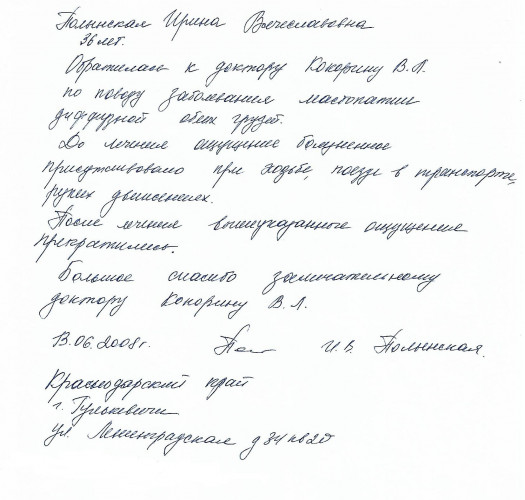 Полынская Ирина Вячеславовна
36 лет.
Обратилась к доктору Кокорину В.Л.
по поводу заболевания мастопатии
диффузной обеих грудей.
До лечения ощущение болезненное
присутствовало при ходьбе, поезде в транспорте,
резких движениях.
После лечения вышеуказанные ощущения
прекратились.
Большое спасибо замечательному
доктору Кокорину В.Л.
13.06.2008г. И.В. Полынская.
Краснодарский край
г. Гулькевичи
ул. Ленинградская д 34 кв 20